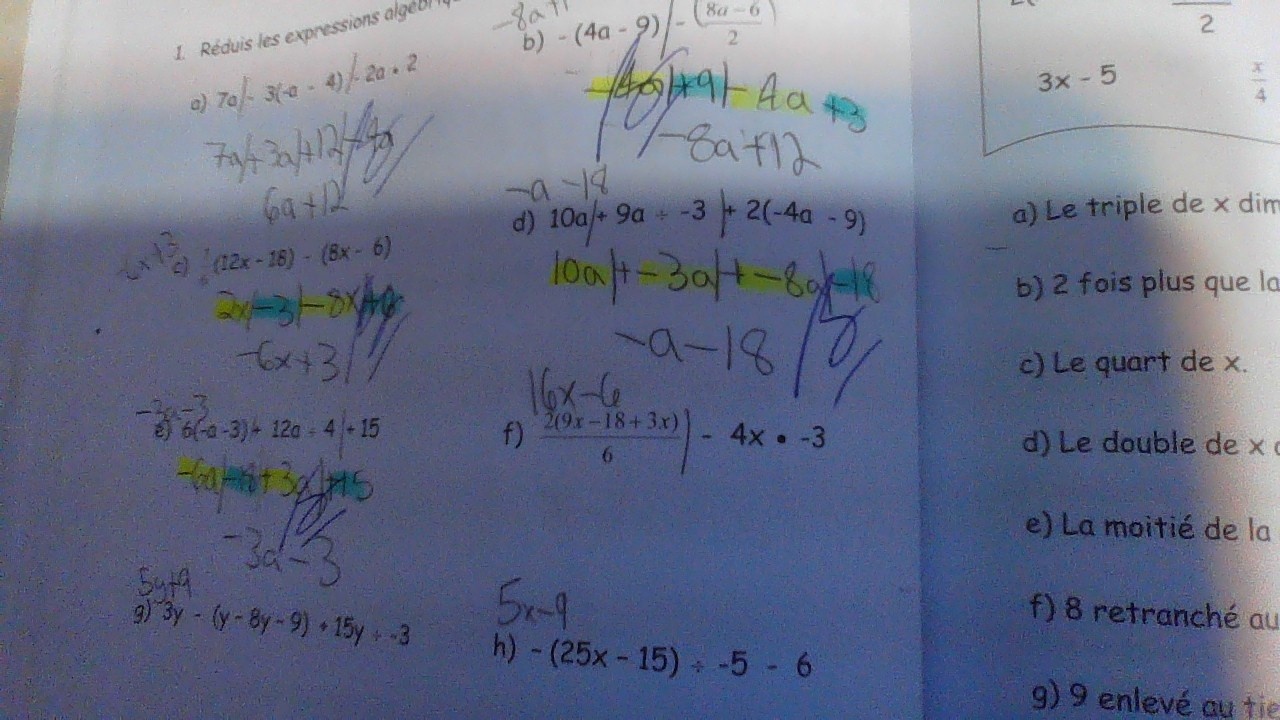 1. Réduis les expressions
-8a+1
a) 7a - 3(-a - 4) - 2a • 2
7a + 3a + 12 - 4a
6a + 12
b) - (4a - 9) - (8a - 6)
2
- 4a + 9 - 4a + 3
-8a + 12
c) (12x - 18) - (8x - 6)
2x - 3 - 8x + 6
-6x + 3
-a - 18
d) 10a + 9a ÷ -3 + 2(-4a - 9)
10a + -3a + -8a - 18
-a - 18
-3a - 3
e) 6(-a - 3) + 12a ÷ 4 + 15
-6a - 18 + 3a + 15
-3a - 3
16x - 6
f) 2(9x - 18 + 3x) - 4x • -3
6
5y+9
g) 3y - (y - 8y - 9) + 15y ÷ -3
5x - 9
h) - (25x - 15) ÷ -5 - 6
2
3x - 5
x
4
a) Le triple de x dim
b) 2 fois plus que la
c) Le quart de x.
d) Le double de x
e) La moitié de la
f) 8 retranché au
g) 9 enlevé au tie